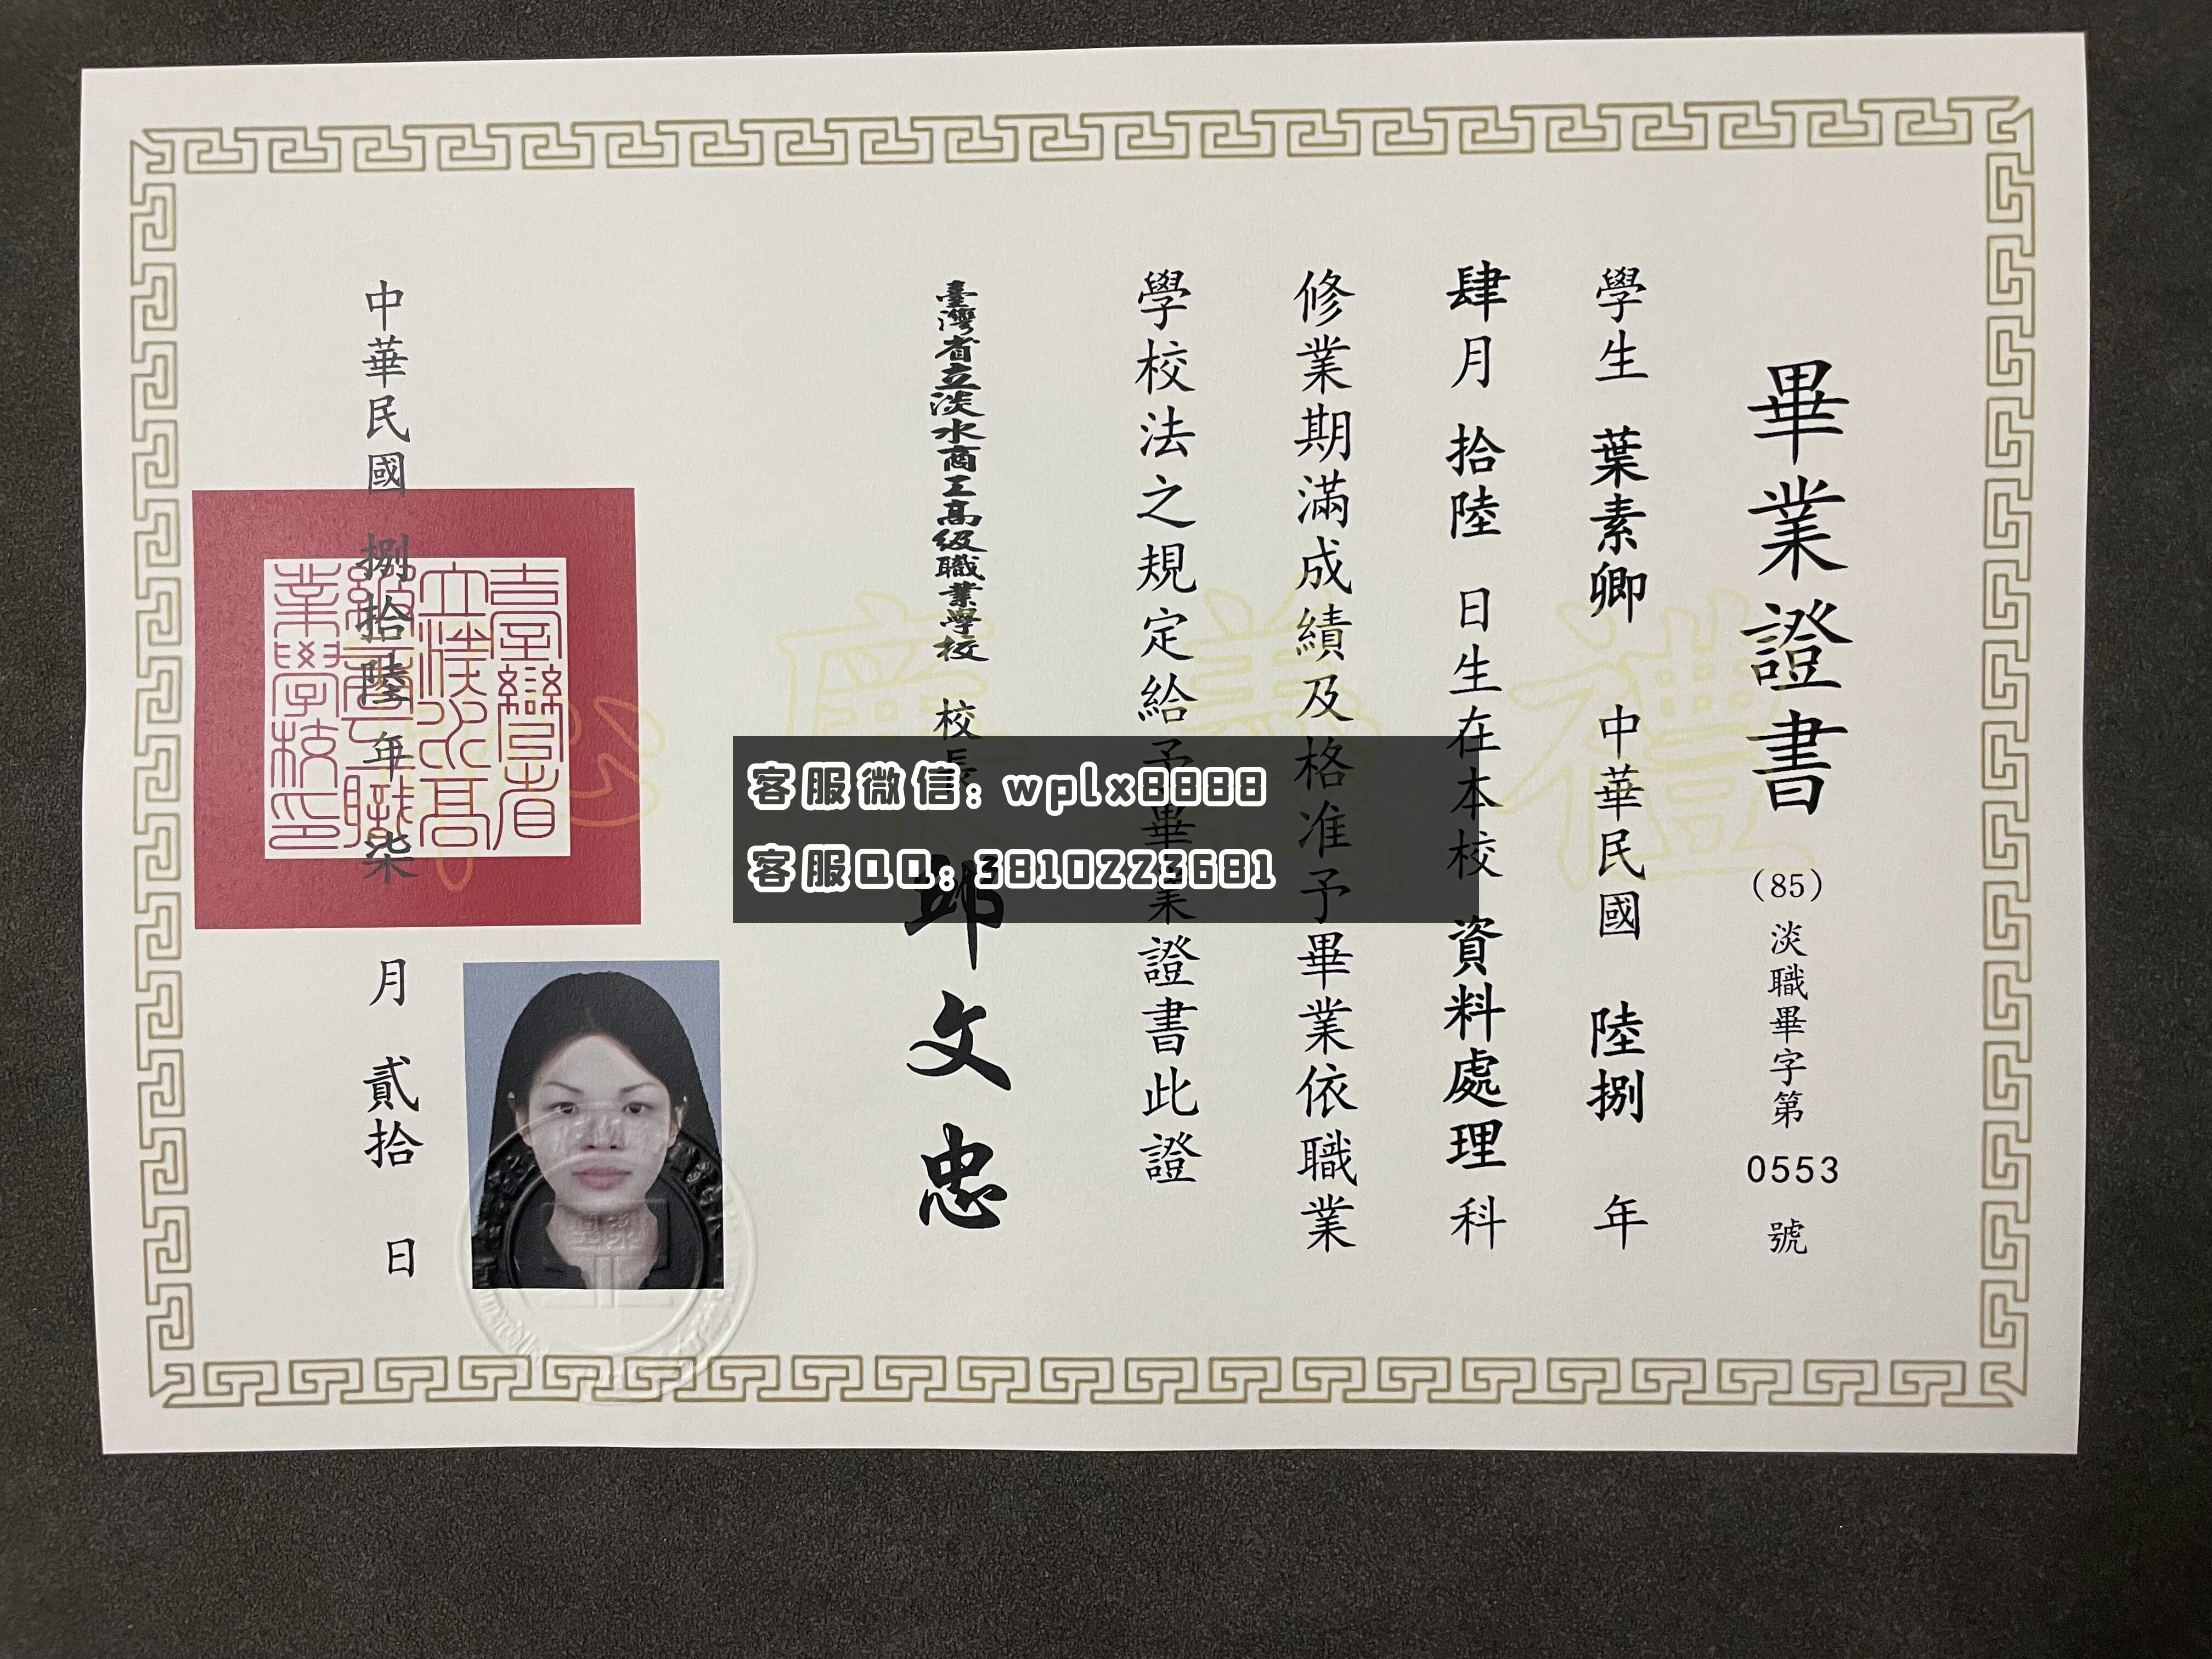 畢業證書
(85)淡職畢字第 0553 號
學生 葉素卿 中華民國 陸捌 年
肆月 拾陸 日生在本校 資料處理 科
修業期滿成績及格准予畢業依職業
學校法之規定給予畢業證書此證
臺灣省立淡水商工高級職業學校 校長 邱文忠
中華民國 捌拾陸 年 柒 月 貳拾 日
禮義廉恥
客服微信: wplx8888
客服QQ: 3810223681